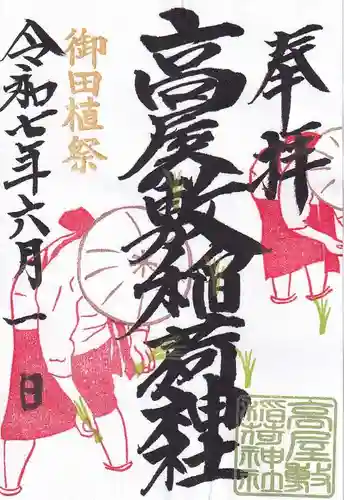 奉拝
高屋敷稲荷神社
御田植祭
令和七年六月一日
高屋敷
稲荷神社